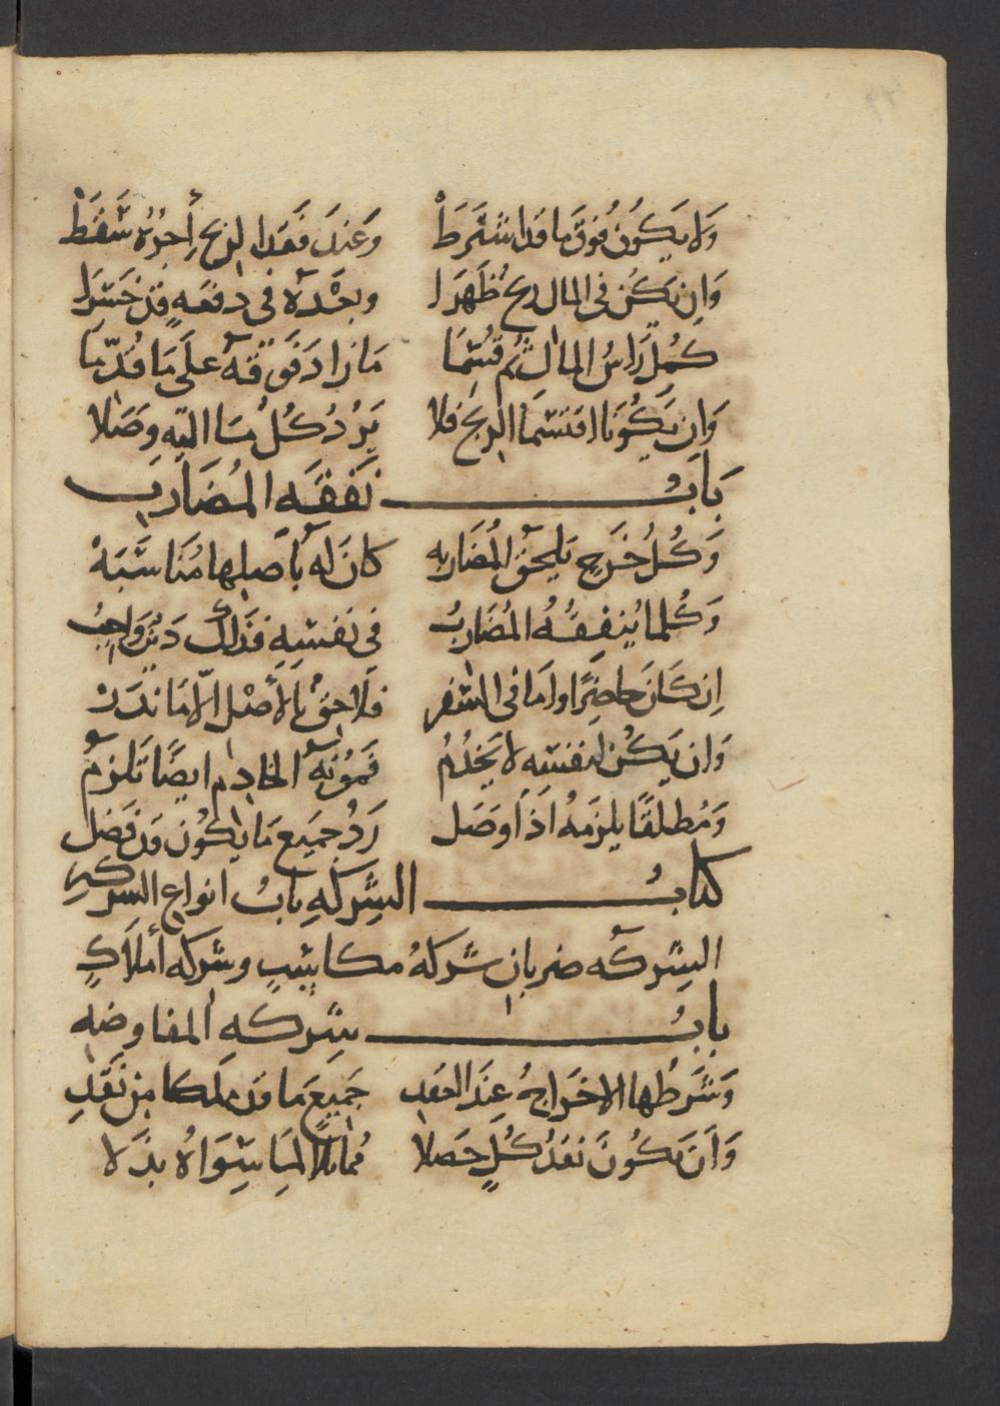 وَلا يَكُونُ فَوْقَ مَا قَد اشتَرَطْ وَعِندَ فَقدِ الربحِ أَجْرُهُ سَقَطْ
وَاِن يَكُن فى المال ربح ظَهَرَا وبعْدَهُ فى دفعَةٍ قَد خَسَرا
كمُل رَاسُ المال ثم قسِّمَا مَا زادَ فَوقَهُ عَلى مَا قُدِّمَا
وَاِن يَكُونَا اقتسَمَا الربحَ فلا يَرُدُّ كُلُّ مَا اليهِ وَصَلا
بَابُ نَفَقَه المُضَارِب
وَكُلُ خَرجٍ يَلحَقُ المُضَاربه كانَ لهُ بأصلِها مُنَاسَبَهْ
وَكُلما يُنفِقُهُ المُضَاربُ فى نفسِهِ فَذاكَ دَينٌ وَاجِبُ
اِن كَانَ حاضِرًا وامَا فى السَفر فلاحِقٌ بالأصْل اِلّا مَا نَدَرْ
وَان يَكُن لنفسه لا يَخدُمُ فَمؤنَة الخادِم ايضًا تَلزمُ
وَمُطلقًا يلزَمهُ اذَا وَصَل رَدُّ جَميع مَا يَكُونُ قَد فَضل
كتابُ الشِركَهِ بابُ انواعِ الشركهِ
الشِركَه ضربانِ شركَهُ مكاسِبٍ وشركَه أملاكٍ
بابُ شِركَهِ المفاوضه
وَشَرطُها الاخرَاجُ عِندَ العَقدِ جَميعَ مَا قَد مَلَكا مِن نَقدِ
وَاَن يَكُونَ نَقدُ كُلٍ حَصَلا مُماثلًا لمَا سِوَاهُ بذَلا